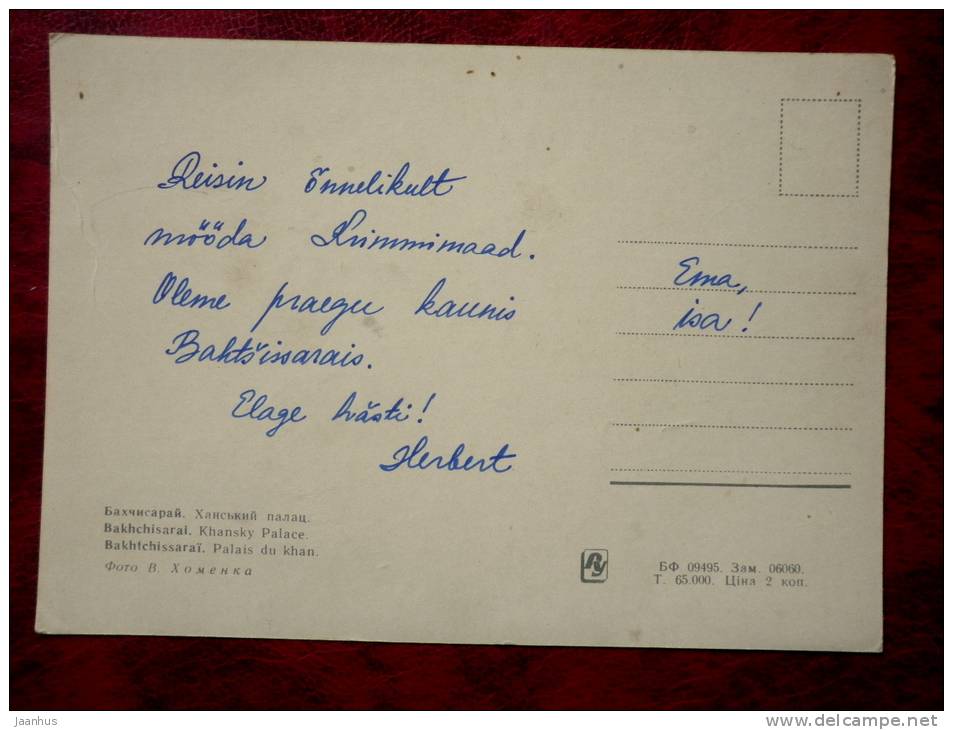 Reisin õnnelikult
mööda Krimmimaad.
Oleme praegu kaunis
Bahtšissarais.
Elage hästi!
Herbert
Ema,
isa!
Бахчисарай. Ханський палац.
Bakhchisarai. Khansky Palace.
Bakhtchissaraï. Palais du khan.
Фото В. Хоменка
БФ 09495. Зам. 06060.
Т. 65.000. Ціна 2 коп.
jaanhus
www.delcampe.net